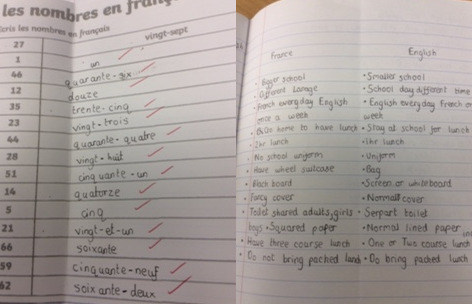 les nombres en franç
cris les nombres en français
27 vingt-sept
1 un
46 quarante-six
12 douze
35 trente-cinq
23 vingt-trois
44 quarante-quatre
28 vingt-huit
51 cinquante-un
14 quatorze
5 cinq
21 vingt-et-un
66 soixante
59 cinquante-neuf
62 soixante-deux
France
• Bigger school
• Different
• French everyday English
once a week
• Go home to have lunch
• 2hr lunch
• No school uniform
• Have wheel suitcase
• Black board
• Fancy cover
• Toilet shared adults, girls
boys • Squared paper
• Have three course lunch
• Do not bring packed
English
• Smaller school
• School day different time
• English everyday French
week
• Stay at school for lunch
• 1hr lunch
• Uniform
• Bag
• Screen or whiteboard
• Normal cover
• Serpart toilet
• Normal lined paper
• One or Two course lunch
• Do bring packed lunch